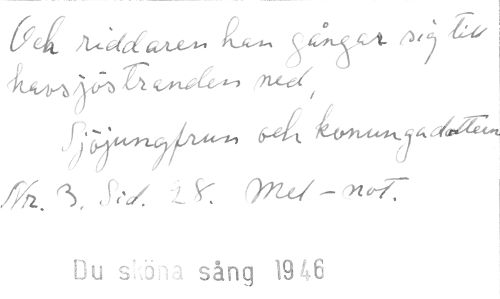 Och riddaren han gångar sig till
havsjöstranden ned,
Sjöjungfrun och konungadottern
Nr. 3. Sid. 28. Mel-not.
Du sköna sång 1946